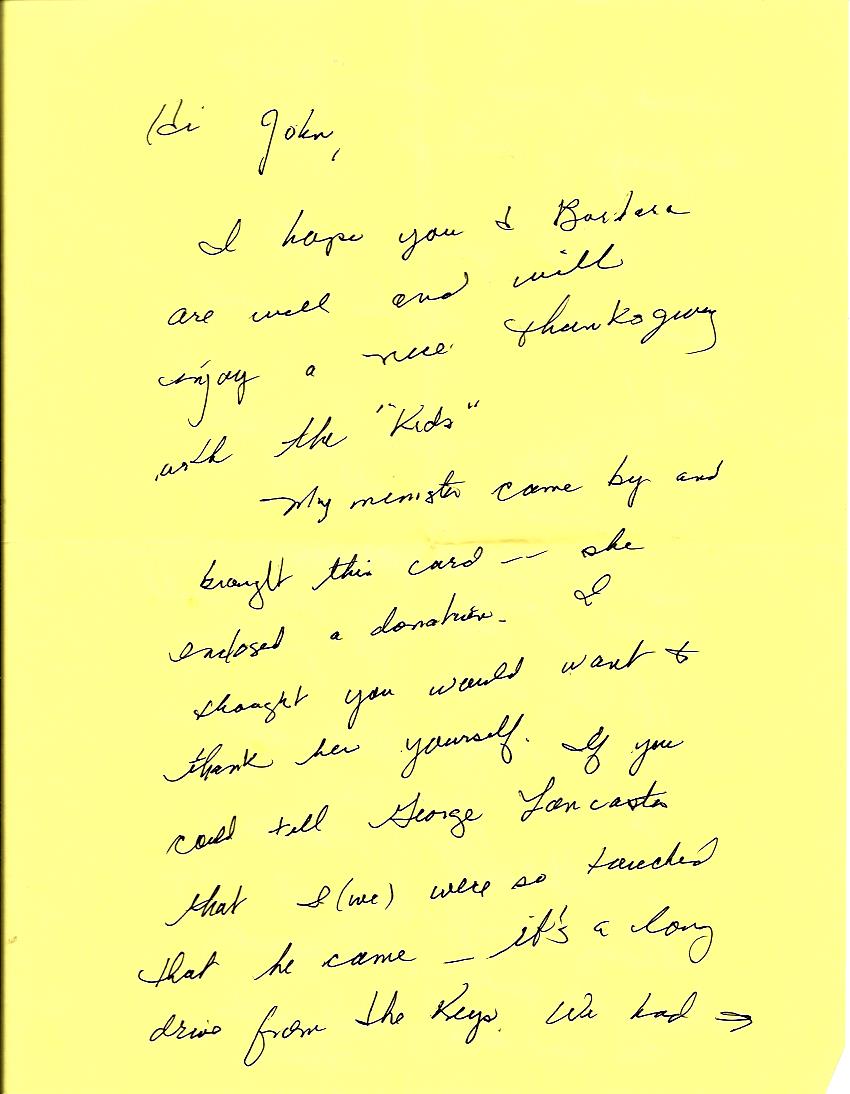 Hi John,
I hope you & Barbara
are well and will
enjoy a nice Thanksgiving
with the "Kids"
My minister came by and
brought this card -- she
enclosed a donation. I
thought you would want to
thank her yourself. If you
could tell George Lancaster
that I (we) were so touched
that he came - it's a long
drive from the Keys. We had →